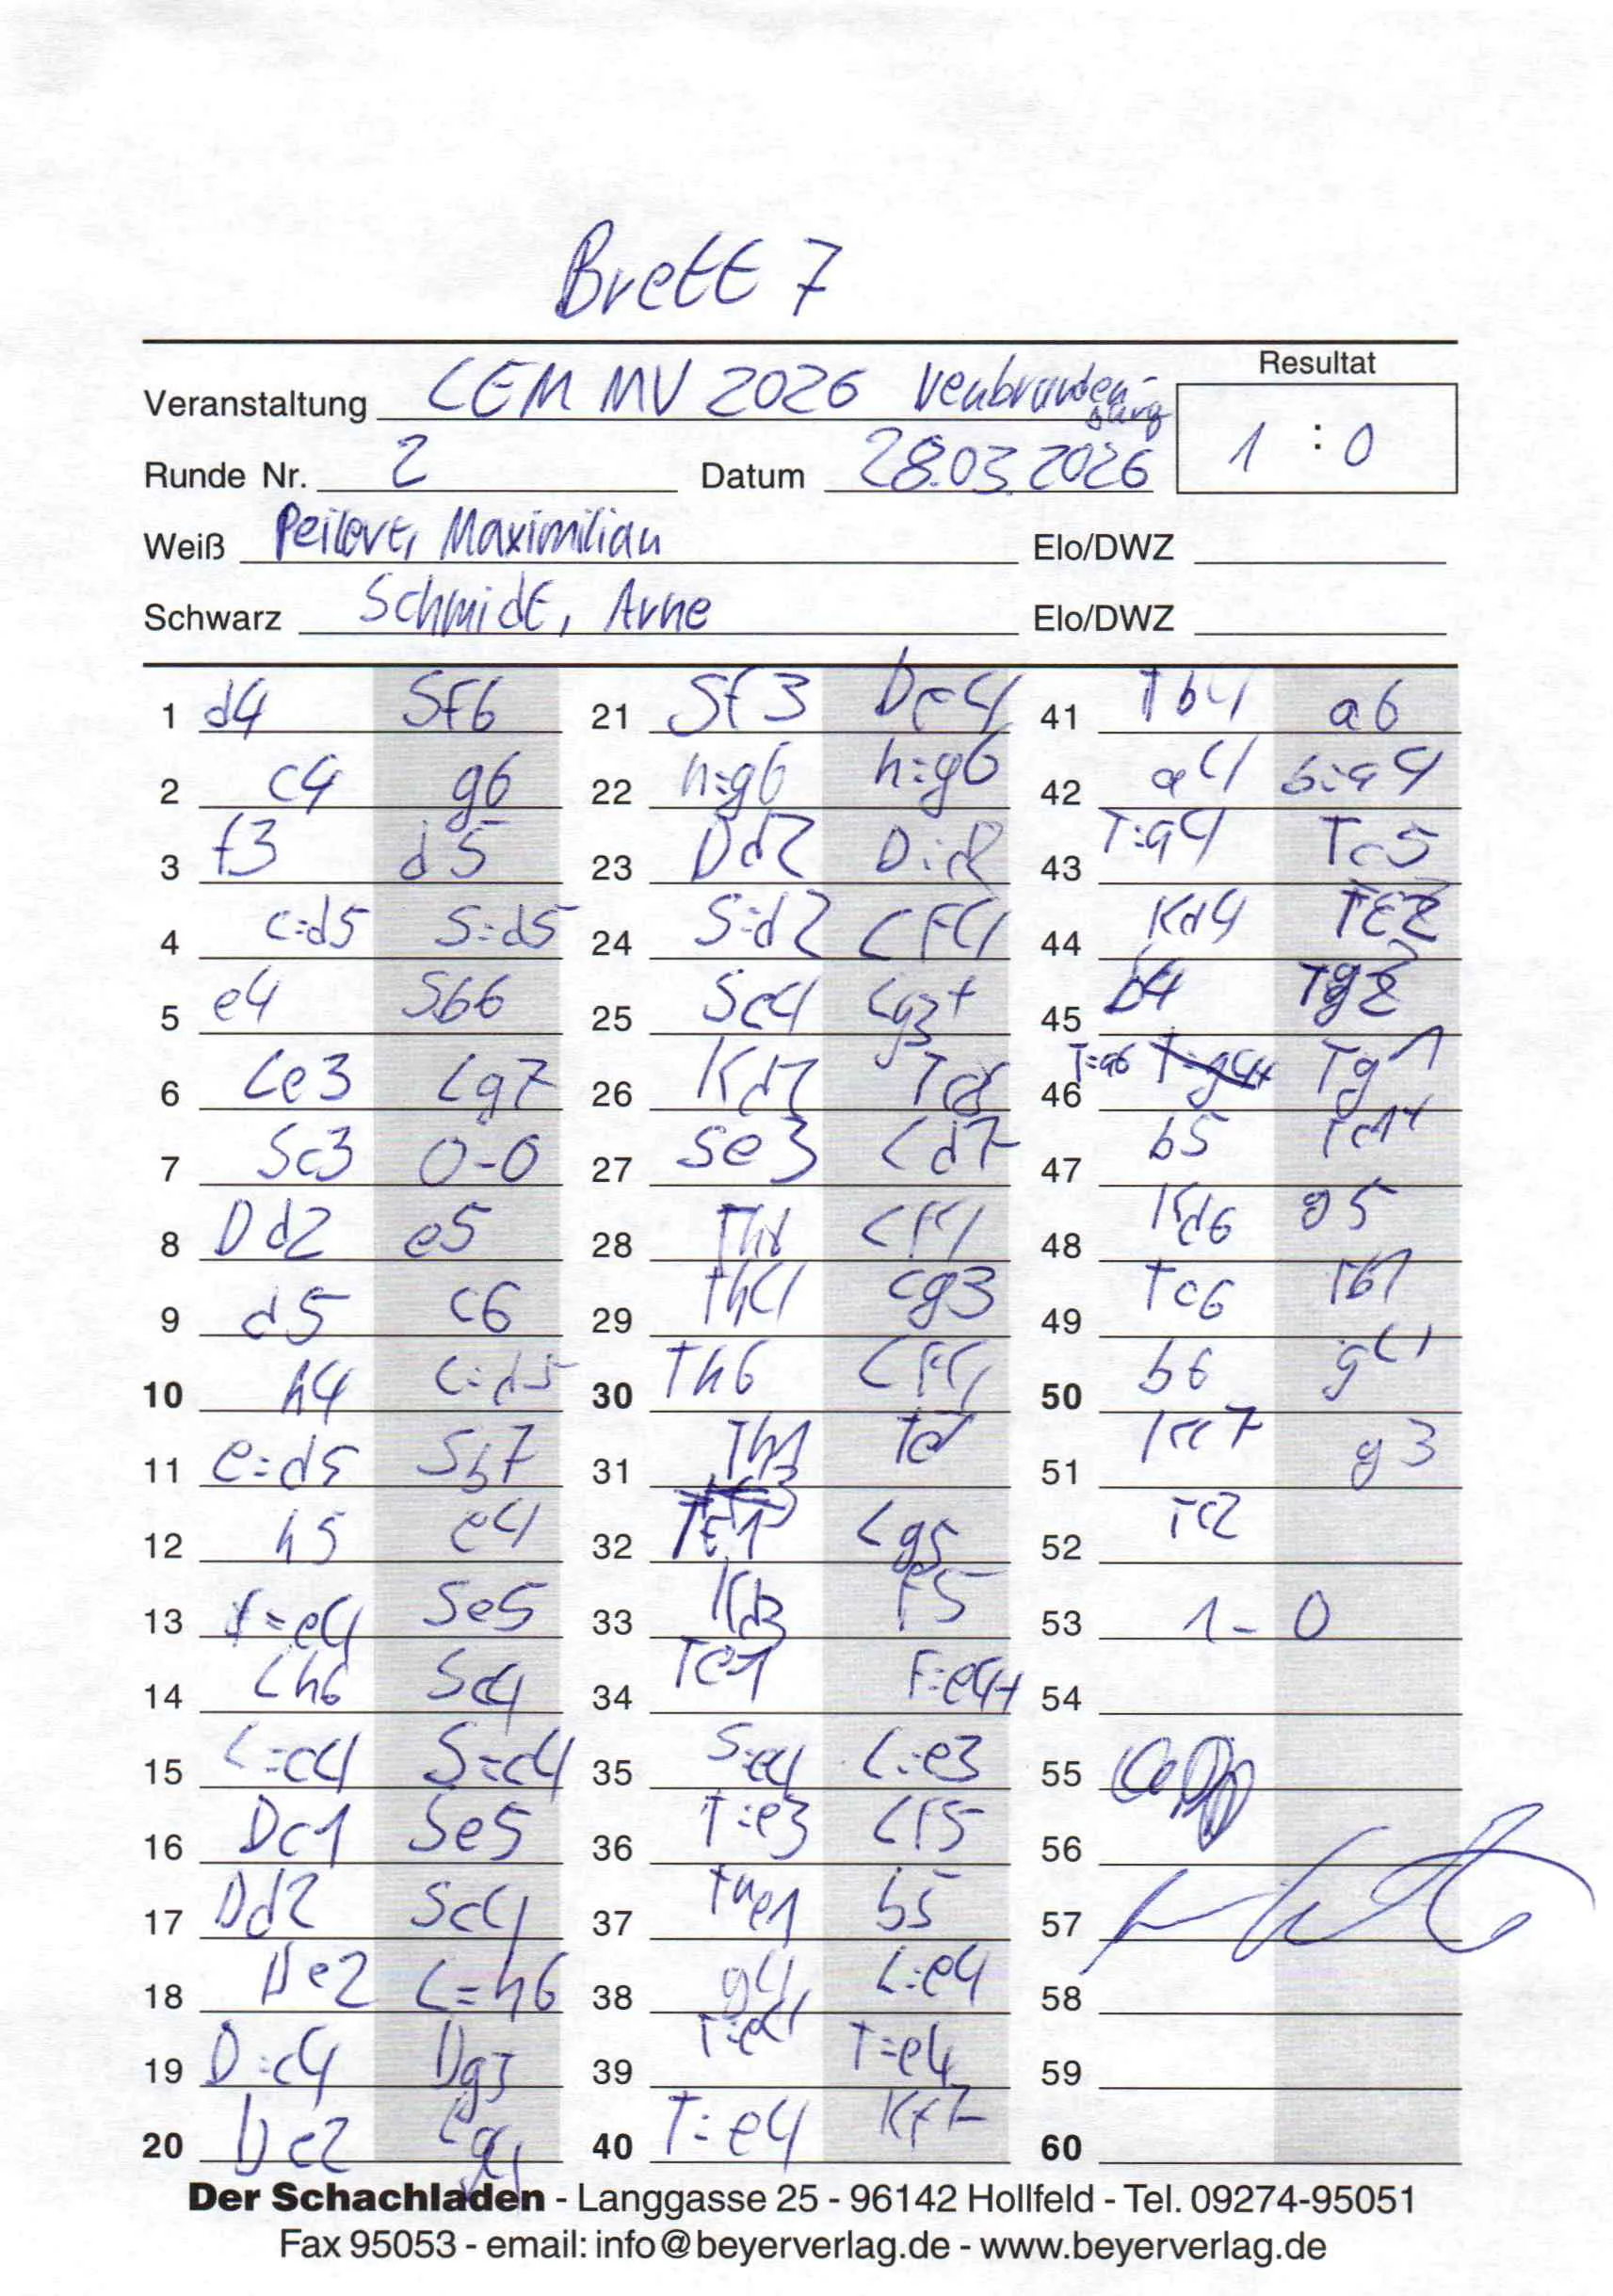 Brett 7
Resultat
Veranstaltung LEM MV 2026 Neubranden-
burg
1 : 0
Runde Nr. 2 Datum 28.03.2026
Weiß Maximilian Elo/DWZ
Schwarz Schmidt, Arne Elo/DWZ
1 d4 Sf6 21 Sf3 De4 41 Tb4 a6
2 c4 g6 22 h:g6 h:g6 42 a4 b:a4
3 f3 d5 23 Dd2 D:d2 43 T:a4 Tc5
4 c:d5 S:d5 24 S:d2 Lf4 44 Kd4
5 e4 Sb6 25 Sc4 Lg3+ 45 b4 Tg2
6 Le3 Lg7 26 Kd2 46 T:a6 Tg1
7 Sc3 0-0 27 Se3 Ld7 47 b5 Td1+
8 Dd2 e5 28 Lf4 48 Kd6 g5
9 d5 c6 29 Th4 Lg3 49 Tc6 Tb1
10 h4 c:d5 30 Th6 Lf4 50 b6 g4
11 e:d5 S67 31 Th1 51 Kc7 g3
12 h5 e4 32 Lg5 52 Tc2
13 f:e4 Se5 33 Kd3 f5 53 1-0
14 Lh6 Sc4 34 Te1 f:e4+ 54
15 L:c4 S:c4 35 S:e4 L:e3 55
16 Dc1 Se5 36 T:e3 Lf5 56
17 Dd2 Sc4 37 The1 b5 57
18 De2 L:h6 38 g4 L:e4 58
19 D:c4 Dg5 39 T:e4 T:e4 59
20 De2 Lg4 40 T:e4 Kf7 60
Der Schachladen - Langgasse 25 - 96142 Hollfeld - Tel. 09274-95051
Fax 95053 - email: info@beyerverlag.de - www.beyerverlag.de